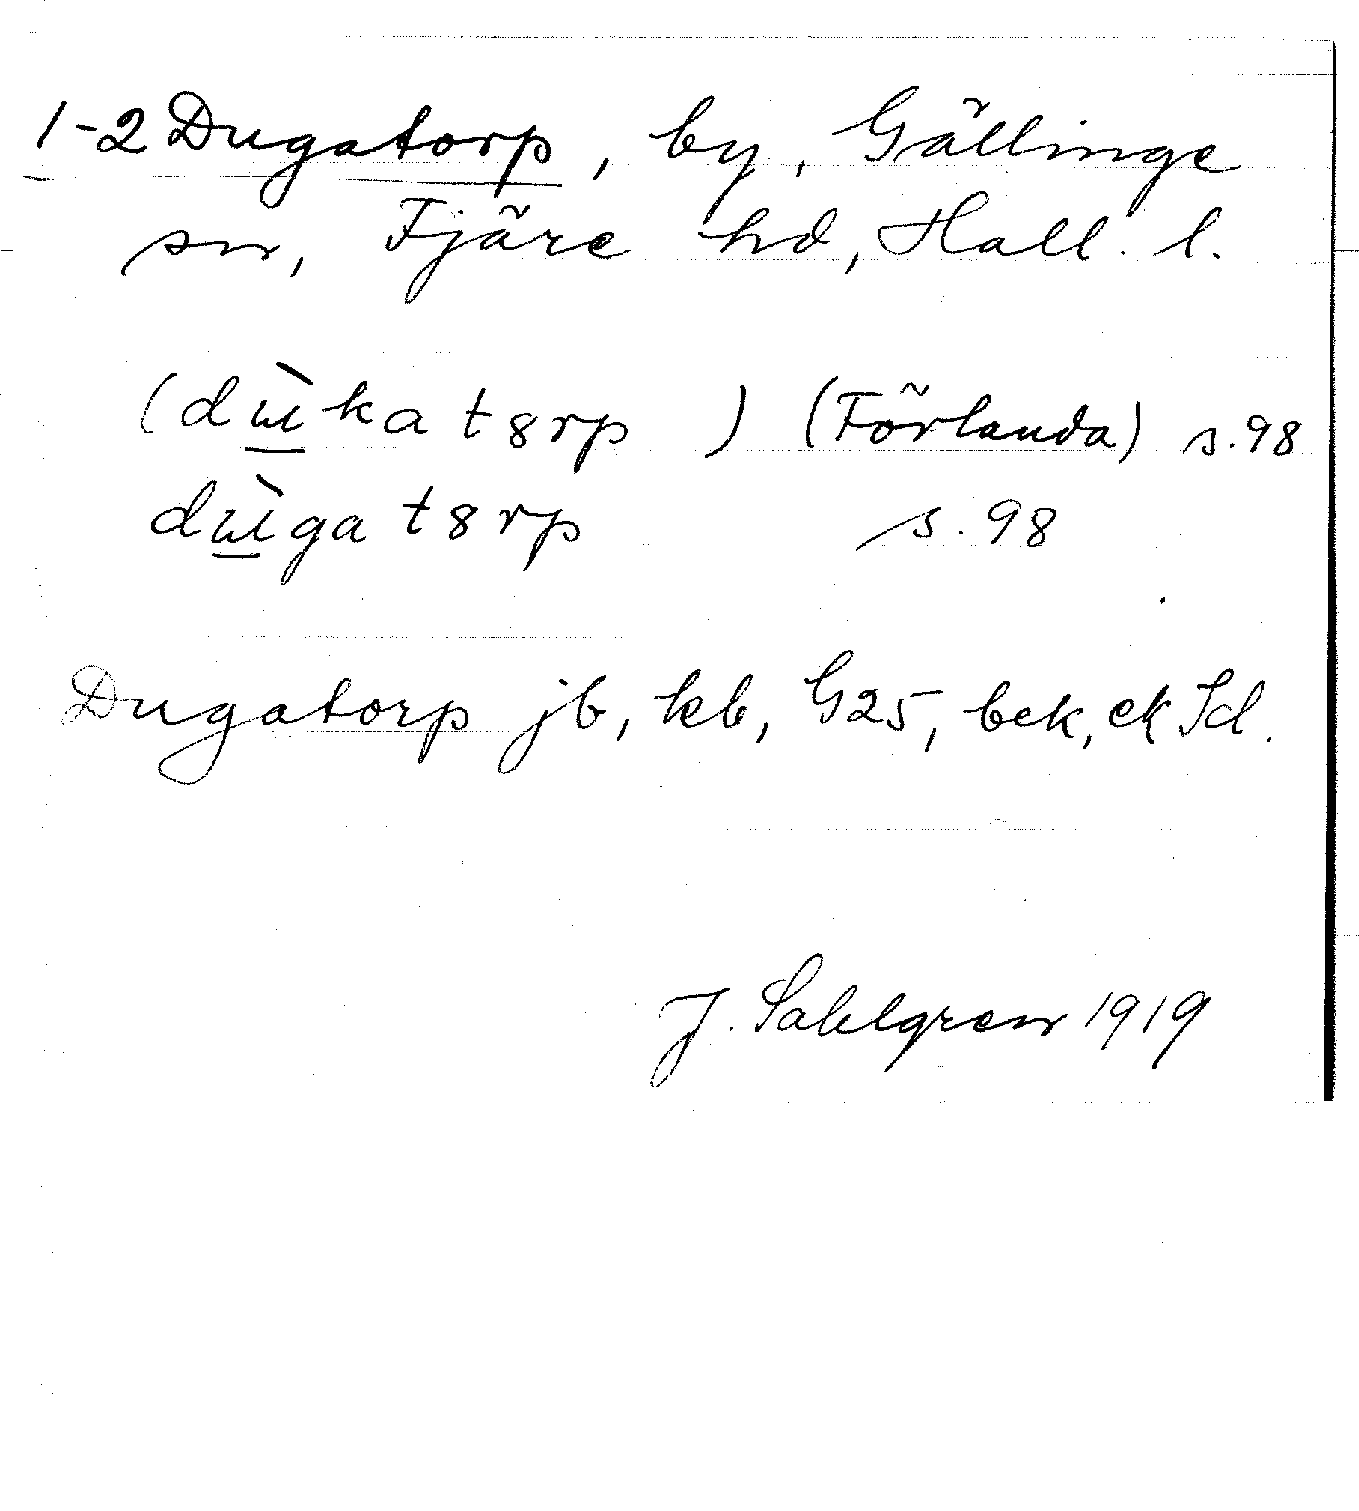 1-2 Dugatorp, by, Gällinge
sn, Fjäre hd, Hall. l.
(dɯ̀katȣrp) (Förlanda) s. 98
dɯ̀gatȣrp s. 98
Dugatorp jb, kb, G25, bek, ek Sd.
J. Sahlgren 1919